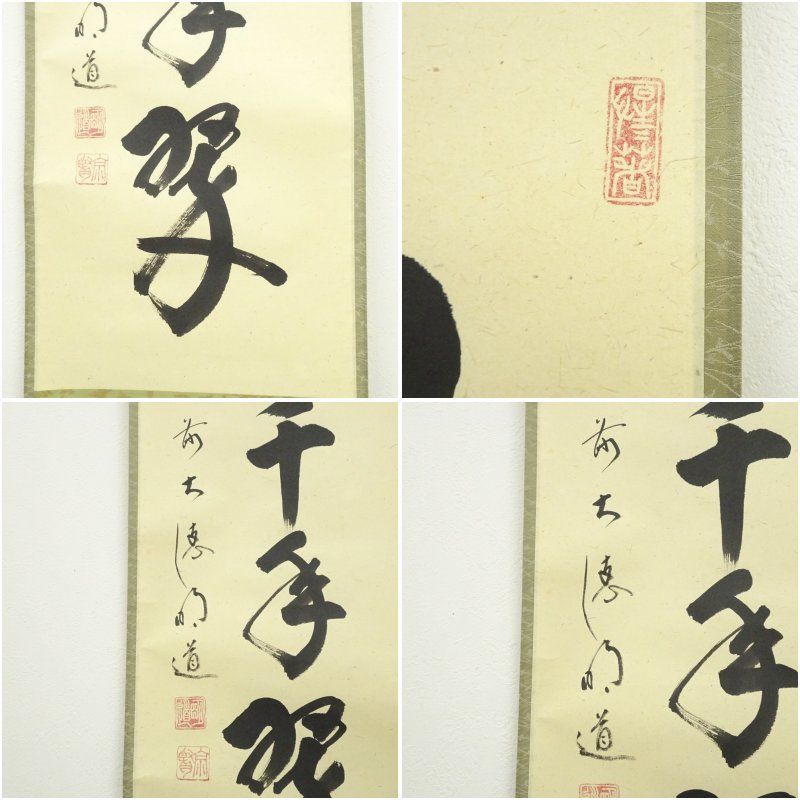 年翠
明道
千年翠
前大徳明道
千年
前大徳明道